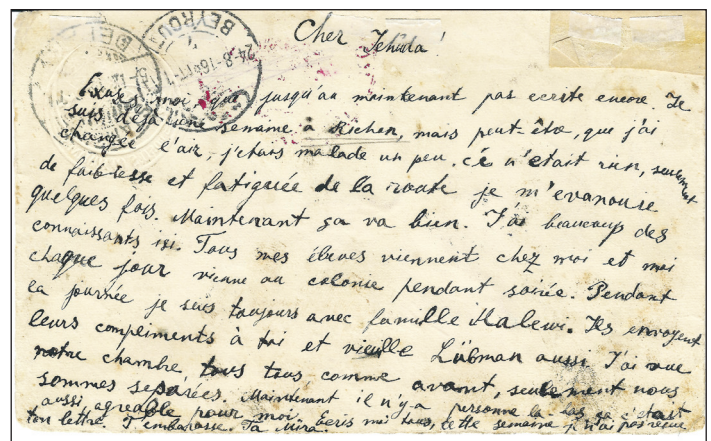 Cher Jehuda!
BEYROUTH
24-8-16
Excuse moi, que jusqu'au maintenant pas ecrite encore. Je
suis déjà une semaine à Richon, mais peut-être, que j'ai
changée l'air, j'etais malade un peu. Cé n'etait rien, seulement
de faiblesse et fatiguée de la route je m'evanouie
quelques fois. Maintenant ça va bien. J'ai beaucoup des
connaissants isi. Tous mes élèves viennent chez moi et moi
chaque jour vienne au colonie pendant soirée. Pendant
la journée je suis toujours avec famille Halewi. Ils envoyent
leurs compliments à toi et vieille Lübman aussi. J'ai vue
notre chambre, tous comme avant, seulement nous
sommes separées. Maintenant il n'y-a personne la bas, ça c'etait
aussi agreable pour moi. Ecris moi tous, cette semaine je n'ai pas reçue
ton lettre. T'embrasse. Ta Mira.